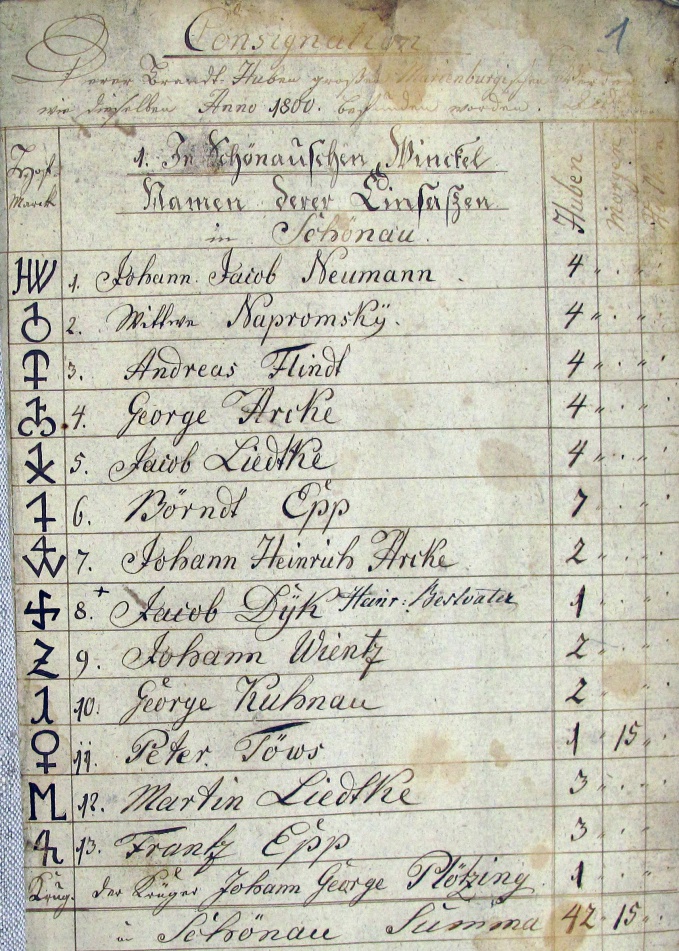 1
Consignation
Derer Brandt-Huben großen Marienburgischen
wie dieselben Anno 1800. befunden worden.
Hoff Marck
1. In Schönauschen Winckel
Namen derer Einsaßen
in Schönau.
Huben Morgen
HW 1. Johann Jacob Neumann 4 " . "
2. Wittwe Napromskÿ. 4 " . "
3. Andreas Flindt 4 " . "
4. George Arcke 4 " . "
5. Jacob Liedtke 4 " . "
6. Börndt Epp 7 " . "
7. Johann Heinrich Arcke 2 " . "
8. + Jacob Dÿk Heinr: Bestvater 1 " . "
9. Johann Wientz 2 " . "
10. George Kuhnau 2 " . "
11. Peter Töws 1 15 "
12. Martin Liedtke 3 " . "
13. Frantz Epp 3 " . "
Krug. der Krüger Johann George Plötzing 1 " . "
in Schönau Summa 42 15 "